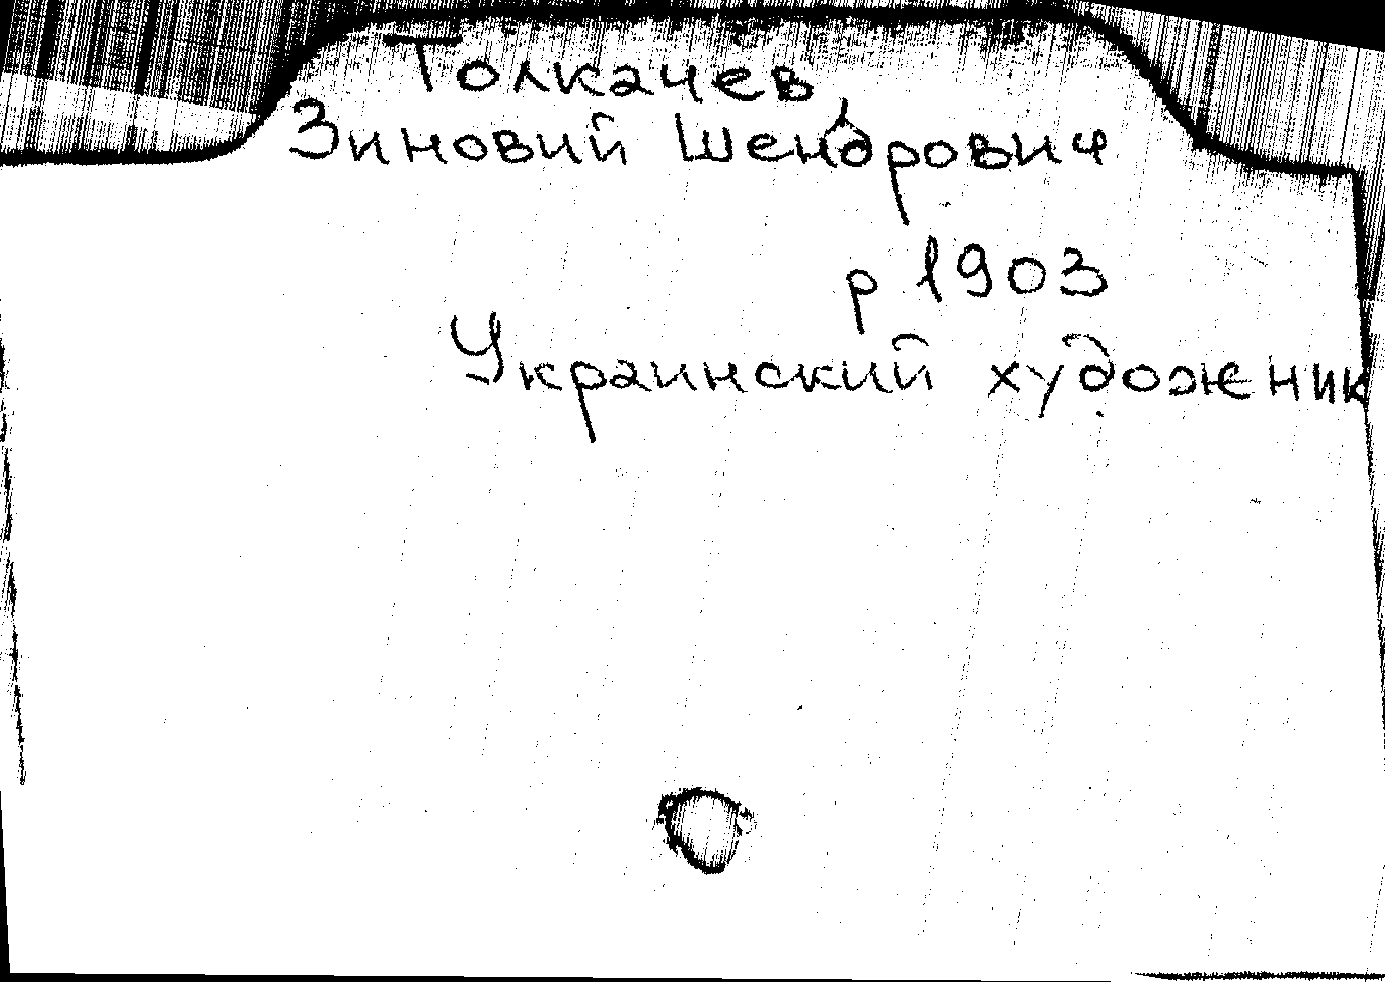 Толкачев,
Зиновий Шендрович
р 1903
Украинский художник